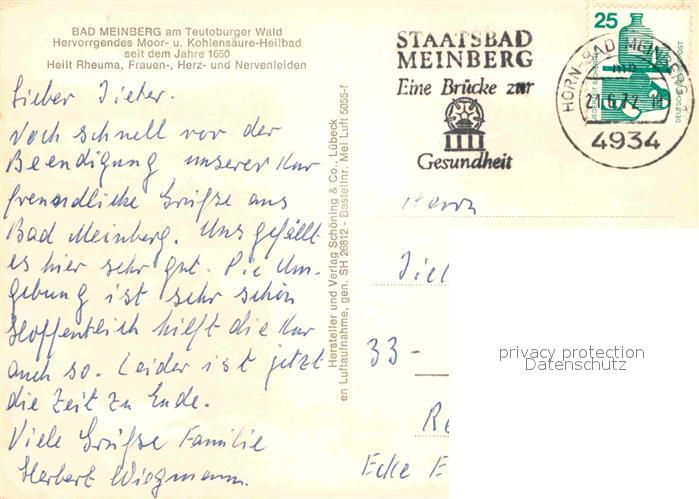 BAD MEINBERG am Teutoburger Wald
Hervorrgendes Moor- u. Kohlensäure-Heilbad
seit dem Jahre 1650
Heilt Rheuma, Frauen-, Herz- und Nervenleiden
Lieber Dieter.
Noch schnell vor der
Beendigung unserer Kur
freundliche Grüße aus
Bad Meinberg. Uns gefällt
es hier sehr gut. Die Um-
gebung ist sehr schön
Hoffentlich hilft die Kur
auch so. Leider ist jetzt
die Zeit zu Ende.
Viele Grüße Familie
Herbert Wiegmann.
Hersteller und Verlag Schöning & Co., Lübeck
en Luftaufnahme, gen. SH 26812 - Bestellnr. Mei Luft 5056-f
STAATSBAD
MEINBERG
Eine Brücke zur
Gesundheit
25
DEUTSCHE BUNDESPOST
HORN-BAD MEINBERG
21.6.72
4934
Herrn
Diet
33-
Re
Ecke E
privacy protection
Datenschutz